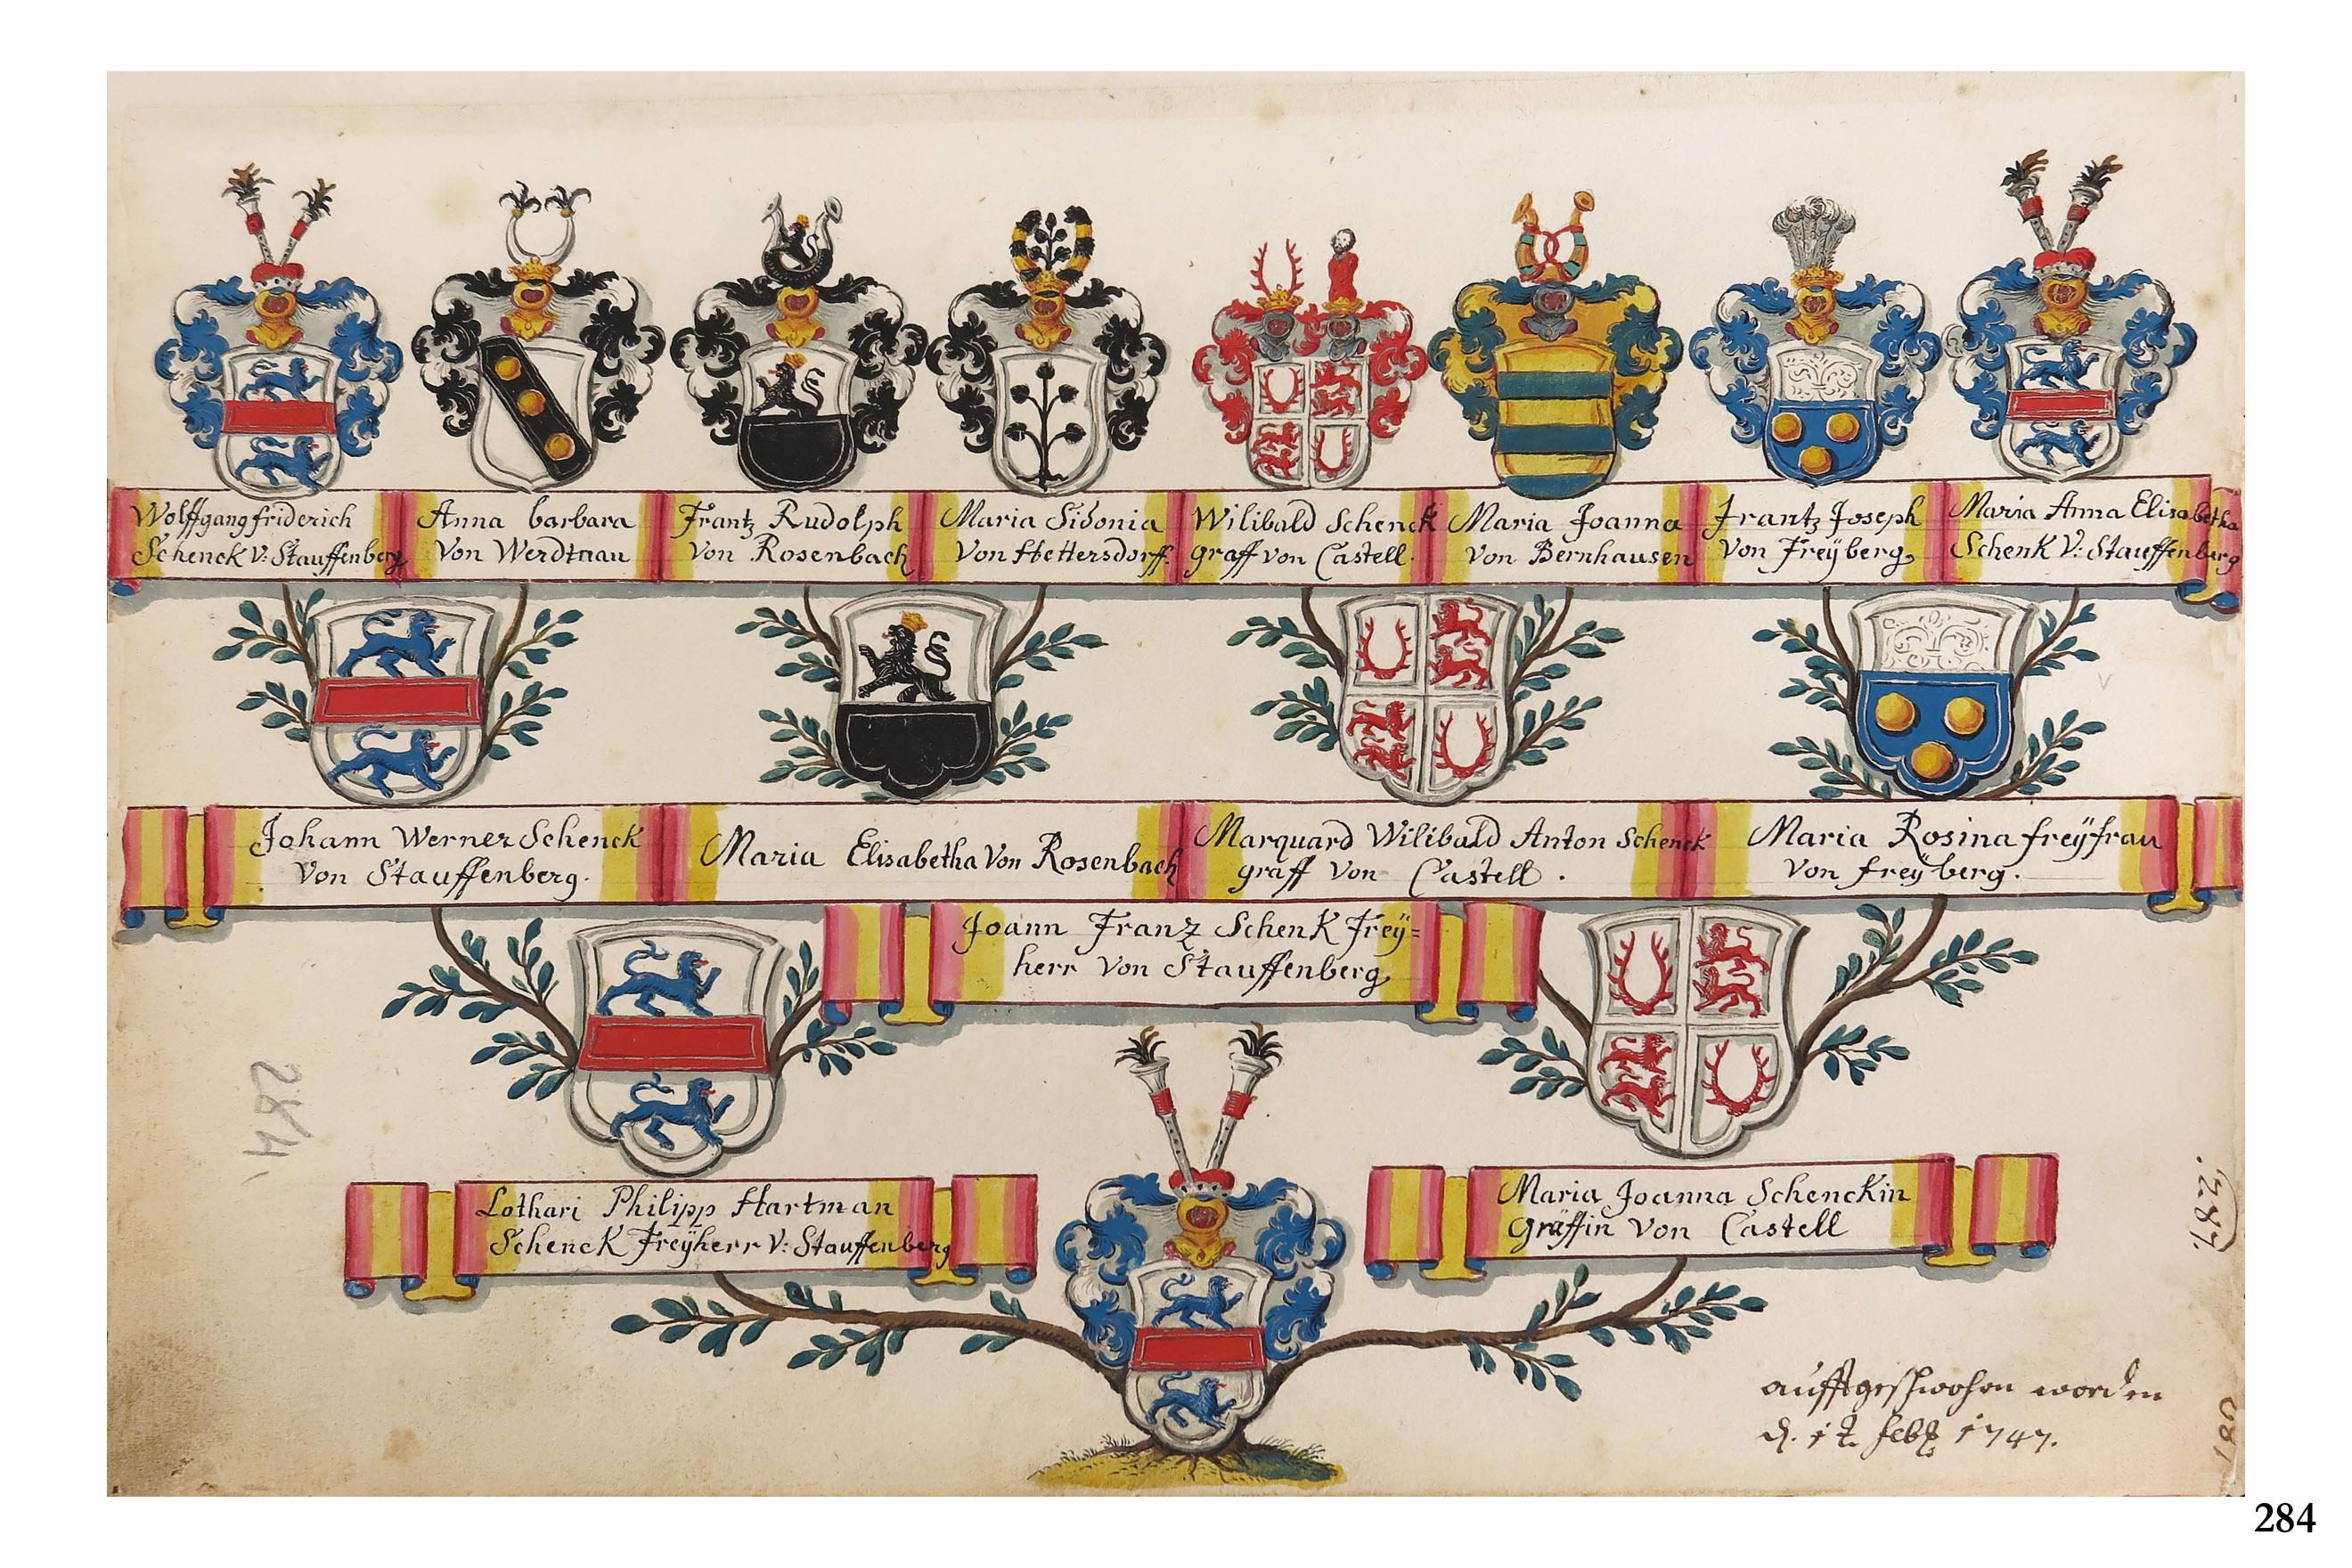 Wolffgang friderich
Schenck V: Stauffenberg
Anna barbara
Von Werdtnau
Frantz Rudolph
Von Rosenbach
Maria Sidonia
Von Hettersdorff.
Wilibald Schenck
graff von Castell.
Maria Joanna
Von Bernhausen
Frantz Joseph
Von Freÿberg
Maria Anna Elisabetha
Schenk V: Stauffenberg
Johann Werner Schenck
Von Stauffenberg.
Maria Elisabetha Von Rosenbach
Marquard Wilibald Anton Schenck
graff von Castell.
Maria Rosina freÿfrau
Von freÿberg.
Joann Franz Schenk Freÿ=
herr Von Stauffenberg
284.
Lothari Philipp Hartman
Schenck Freÿherr V: Stauffenberg
Maria Joanna Schenckin
Gräffin Von Castell
.287.
auffgeschworen worden
d. 1747.
284